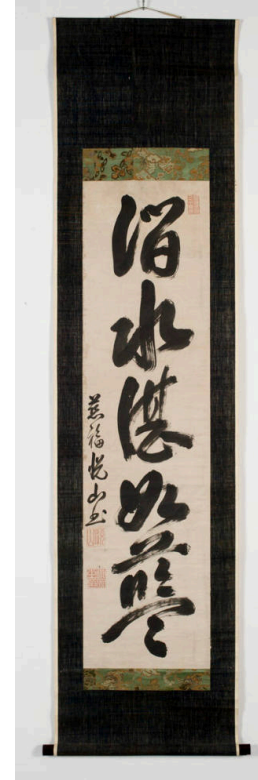 澗水湛如藍
慈福悦山書